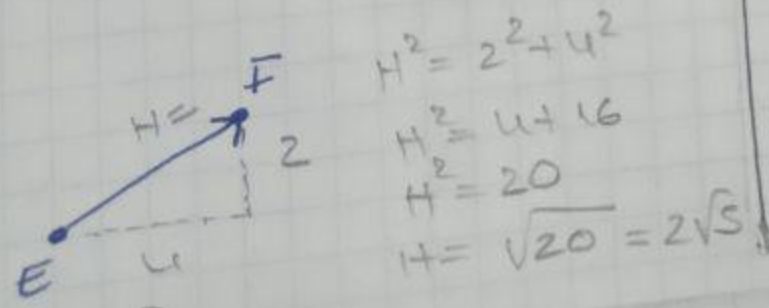 F
H =
2
4
E
H² = 2² + 4²
H² = 4 + 16
H² = 20
H = √20 = 2√5